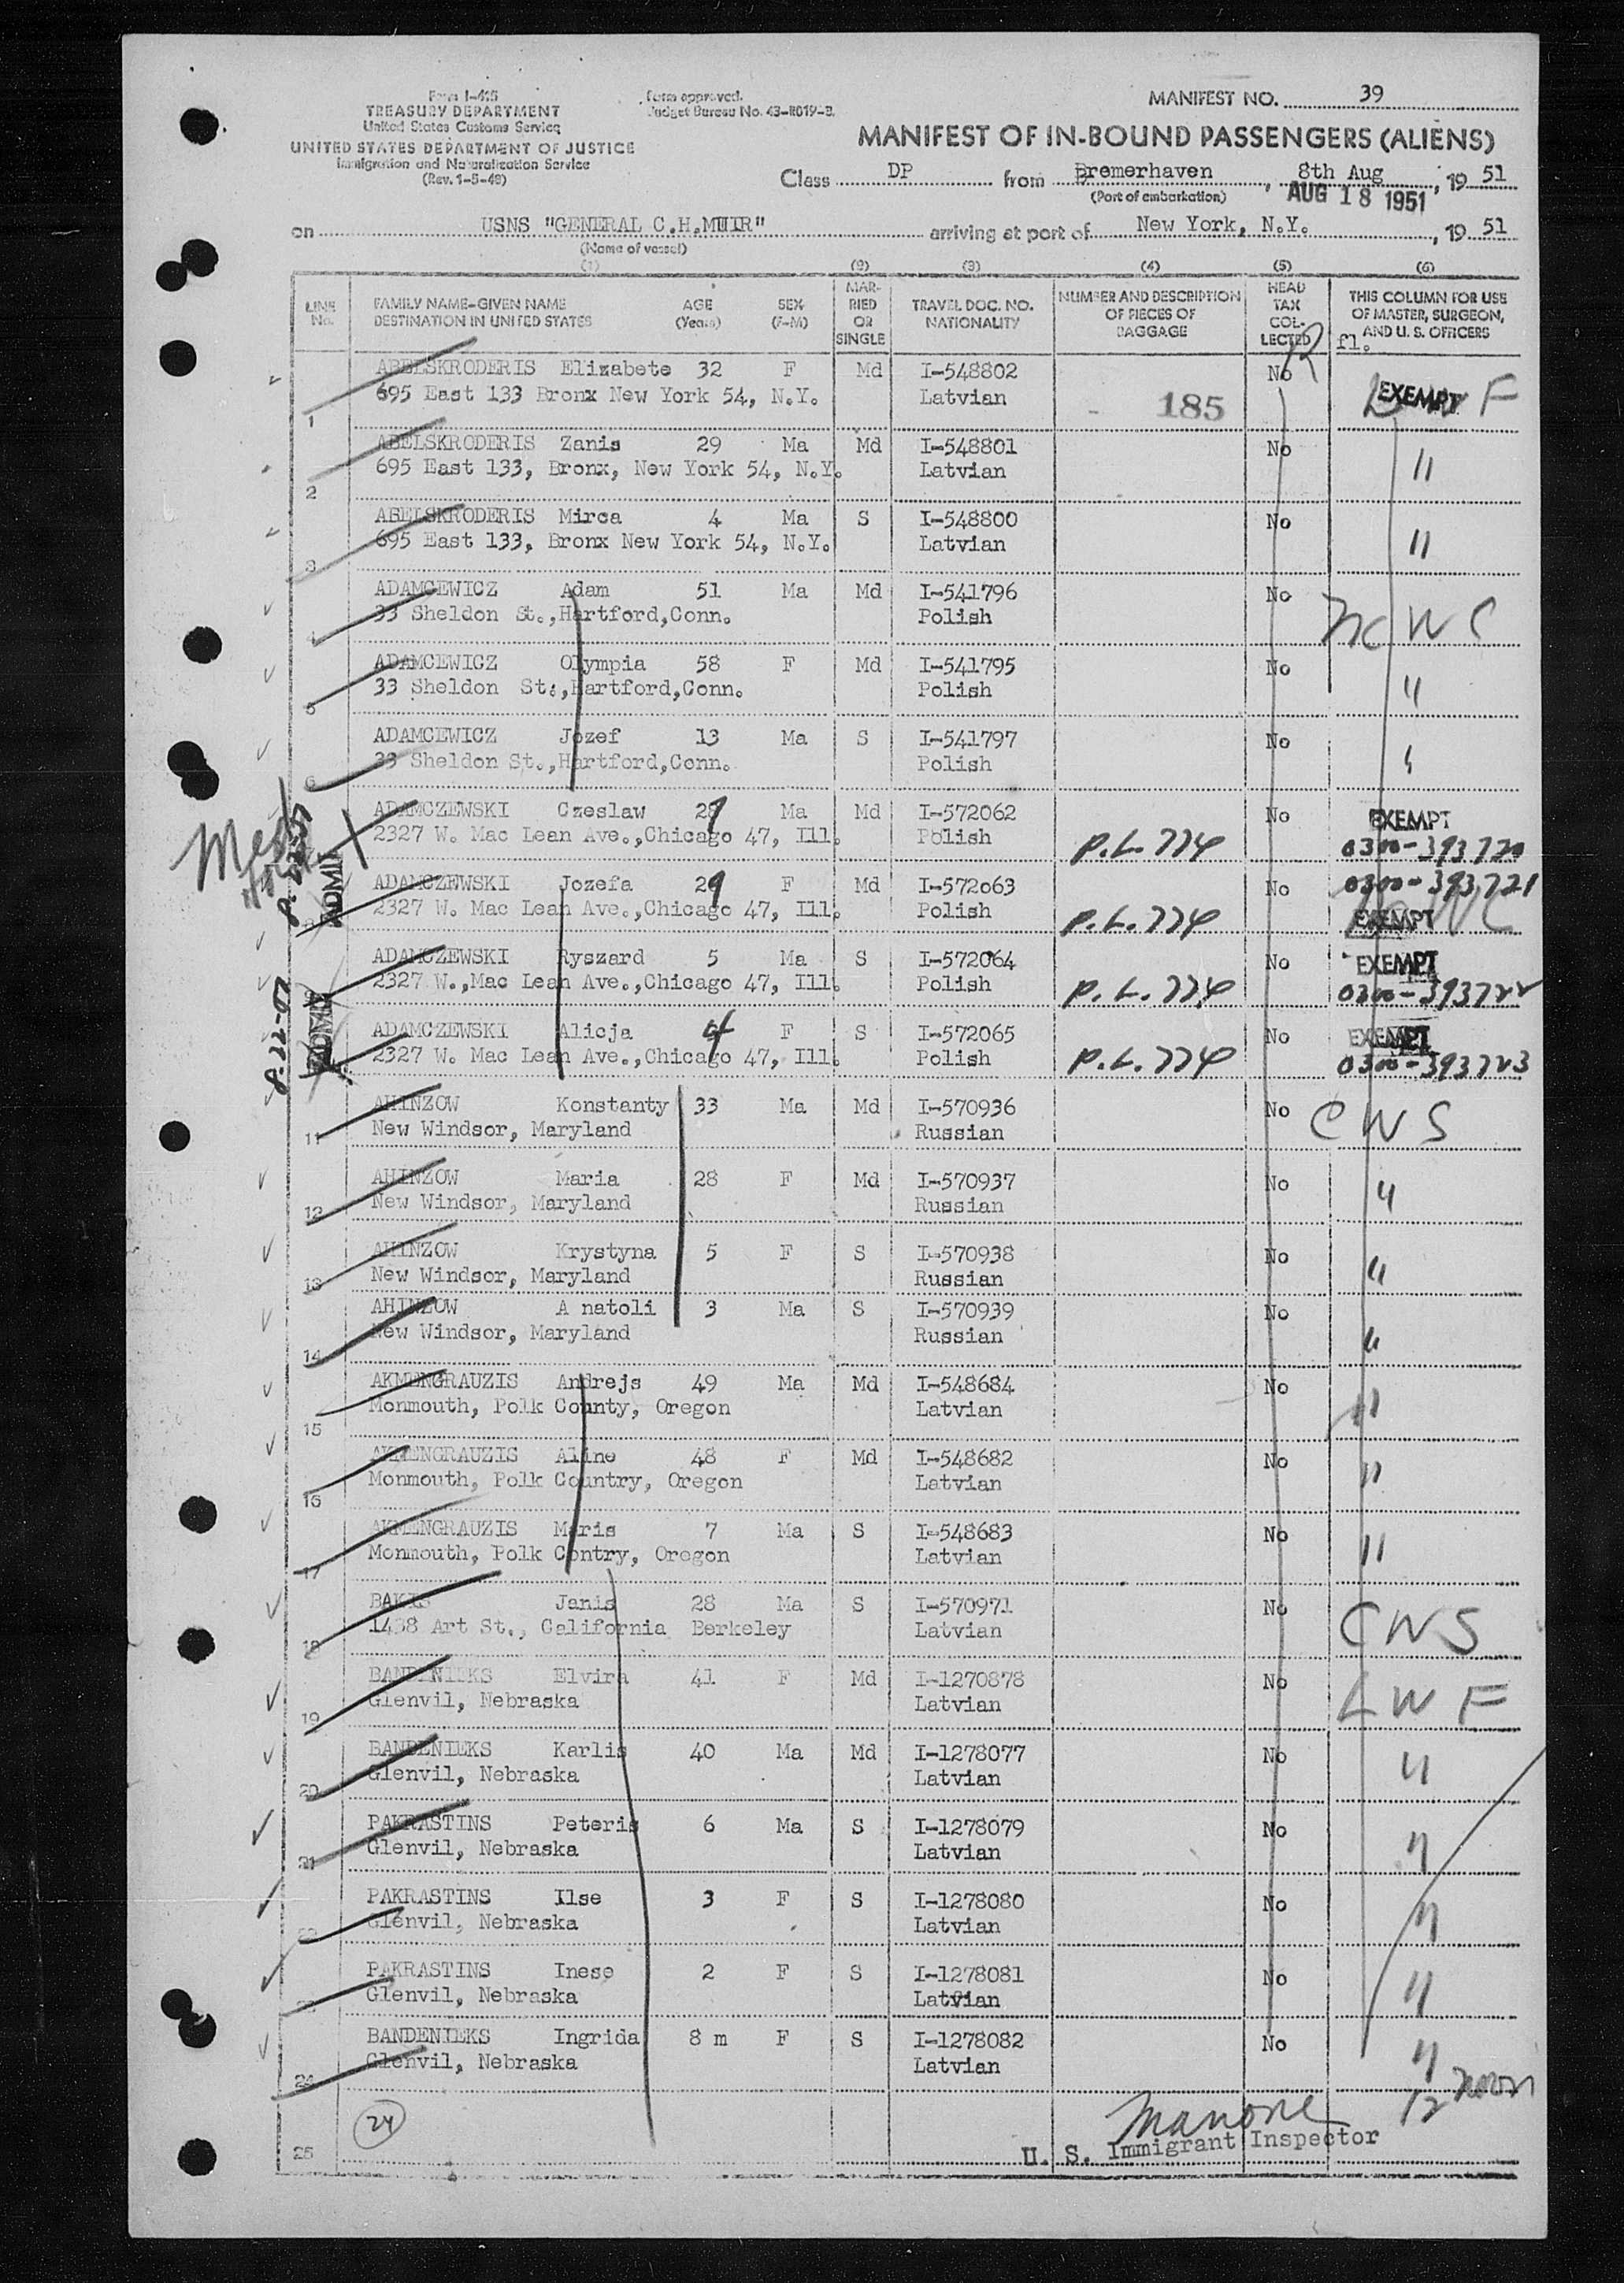 Form I-415
TREASURY DEPARTMENT
United States Customs Service
UNITED STATES DEPARTMENT OF JUSTICE
Immigration and Naturalization Service
(Rev. 1-5-48)
Form approved.
Budget Bureau No. 43-R019-2.
MANIFEST NO. 39
MANIFEST OF IN-BOUND PASSENGERS (ALIENS)
Class DP from Bremerhaven, 8th Aug, 19 51
(Port of embarkation) AUG 18 1951
on USNS "GENERAL C.H.MUIR" arriving at port of New York, N.Y., 19 51
(Name of vessel)
(1) (2) (3) (4) (5) (6)
LINE No. FAMILY NAME-GIVEN NAME DESTINATION IN UNITED STATES AGE (Years) SEX (F-M) MARRIED OR SINGLE TRAVEL DOC. NO. NATIONALITY NUMBER AND DESCRIPTION OF PIECES OF BAGGAGE HEAD TAX COLLECTED THIS COLUMN FOR USE OF MASTER, SURGEON, AND U. S. OFFICERS
fl.
ABELSKRODERIS Elizabete 32 F Md I-548802 No
695 East 133 Bronx New York 54, N.Y. Latvian 185 EXEMPT F
1
ABELSKRODERIS Zanis 29 Ma Md I-548801 No
695 East 133, Bronx, New York 54, N.Y. Latvian "
2
ABELSKRODERIS Mirca 4 Ma S I-548800 No
695 East 133, Bronx New York 54, N.Y. Latvian "
3
ADAMCEWICZ Adam 51 Ma Md I-541796 No
33 Sheldon St.,Hartford,Conn. Polish NCWC
4
ADAMCEWICZ Olympia 58 F Md I-541795 No
33 Sheldon St.,Hartford,Conn. Polish "
5
ADAMCEWICZ Jozef 13 Ma S I-541797 No
33 Sheldon St.,Hartford,Conn. Polish "
6
ADAMCZEWSKI Czeslaw 29 Ma Md I-572062 No EXEMPT
2327 W. Mac Lean Ave.,Chicago 47, Ill. Polish P.L. 774 0300-393720
ADAMCZEWSKI Jozefa 29 F Md I-572063 No 0300-393721
2327 W. Mac Lean Ave.,Chicago 47, Ill. Polish P.L. 774 EXEMPT
8
ADMIT
ADAMCZEWSKI Ryszard 5 Ma S I-572064 No EXEMPT
2327 W.,Mac Lean Ave.,Chicago 47, Ill. Polish P.L. 774 0300-393722
9
ADAMCZEWSKI Alicja 4 F S I-572065 No EXEMPT
2327 W. Mac Lean Ave.,Chicago 47, Ill. Polish P.L. 774 0300-393723
ADMIT
AHINZOW Konstanty 33 Ma Md I-570936 No CWS
New Windsor, Maryland Russian
11
AHINZOW Maria 28 F Md I-570937 No "
New Windsor, Maryland Russian
12
AHINZOW Krystyna 5 F S I-570938 No "
New Windsor, Maryland Russian
13
AHINZOW A natoli 3 Ma S I-570939 No
New Windsor, Maryland Russian "
14
AKMENGRAUZIS Andrejs 49 Ma Md I-548684 No
Monmouth, Polk County, Oregon Latvian "
15
AKMENGRAUZIS Aline 48 F Md I-548682 No
Monmouth, Polk Country, Oregon Latvian "
16
AKMENGRAUZIS Maris 7 Ma S I-548683 No
Monmouth, Polk Contry, Oregon Latvian "
17
Janis 28 Ma S I-570971 No
Art St., California Berkeley Latvian CWS
18
BANDENIEKS Elvira 41 F Md I-1270878 No
Glenvil, Nebraska Latvian LWF
19
BANDENIEKS Karlis 40 Ma Md I-1278077 No
Glenvil, Nebraska Latvian "
20
PAKRASTINS Peteris 6 Ma S I-1278079 No
Glenvil, Nebraska Latvian "
21
PAKRASTINS Ilse 3 F S I-1278080 No
Glenvil, Nebraska Latvian "
22
PAKRASTINS Inese 2 F S I-1278081 No
Glenvil, Nebraska Latvian "
23
BANDENIEKS Ingrida 8 m F S I-1278082 No
Glenvil, Nebraska Latvian "
24
12 noon
24
Manone
25 U. S. Immigrant Inspector